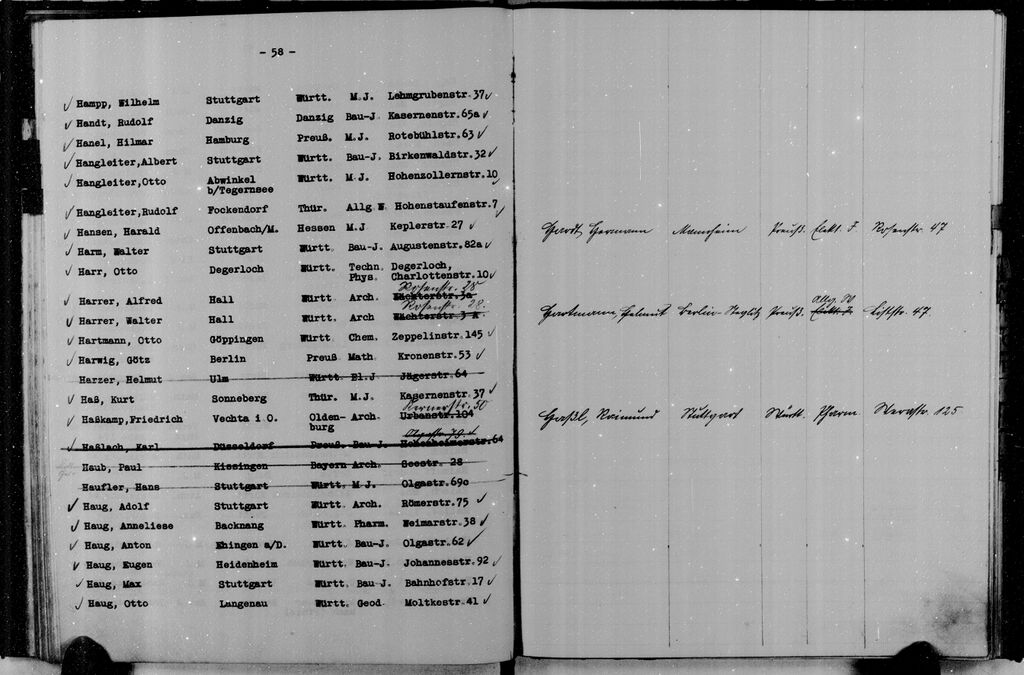 - 58 -
Hampp, Wilhelm Stuttgart Württ. M.J. Lehmgrubenstr.37
Handt, Rudolf Danzig Danzig Bau-J. Kasernenstr.65a
Hanel, Hilmar Hamburg Preuß. M.J. Rotebühlstr.63
Hangleiter,Albert Stuttgart Württ. Bau-J. Birkenwaldstr.32
Hangleiter,Otto Abwinkel Württ. M.J. Hohenzollernstr.10
b/Tegernsee
Hangleiter,Rudolf Fockendorf Thür. Allg W. Hohenstaufenstr.7
Hansen, Harald Offenbach/M. Hessen M.J Keplerstr.27
Harm, Walter Stuttgart Württ. Bau-J. Augustenstr.82a
Harr, Otto Degerloch Württ. Techn. Degerloch,
Phys. Charlottenstr.10
Rosenstr. 28
Harrer, Alfred Hall Württ Arch. Wächterstr.3a
Rosenstr. 28.
Harrer, Walter Hall Württ. Arch Wächterstr.3 a
Hartmann, Otto Göppingen Württ. Chem. Zeppelinstr.145
Harwig, Götz Berlin Preuß Math. Kronenstr.53
Harzer, Helmut Ulm Württ. El.J Jägerstr.64
Haß, Kurt Sonneberg Thür. M.J. Kasernenstr.37
Kernerstr. 50
Haßkamp,Friedrich Vechta i.O. Olden- Arch. Urbanstr.104
burg
Haßlach, Karl Düsseldorf Preuß. Bau-J. Hohenheimerstr.64
Haub, Paul Kissingen Bayern Arch. Seestr. 28
Haufler, Hans Stuttgart Württ. M.J. Olgastr.69c
Haug, Adolf Stuttgart Württ. Arch. Römerstr.75
Haug, Anneliese Backnang Württ. Pharm. Weimarstr.38
Haug, Anton Ehingen a/D. Württ. Bau-J. Olgastr.62
Haug, Eugen Heidenheim Württ. Bau-J. Johannesstr.92
Haug, Max Stuttgart Württ. Bau J. Bahnhofstr.17
Haug, Otto Langenau Württ. Geod. Moltkestr.41
Hardt, Hermann Mannheim Preuß. Elekt. J. Rosenstr. 47
Allg. W.
Hartmann, Helmut Berlin-Steglitz Preuß. Elekt. J. Listr. 47.
Haßl, Raimund Stuttgart Württ. Pharm. 125